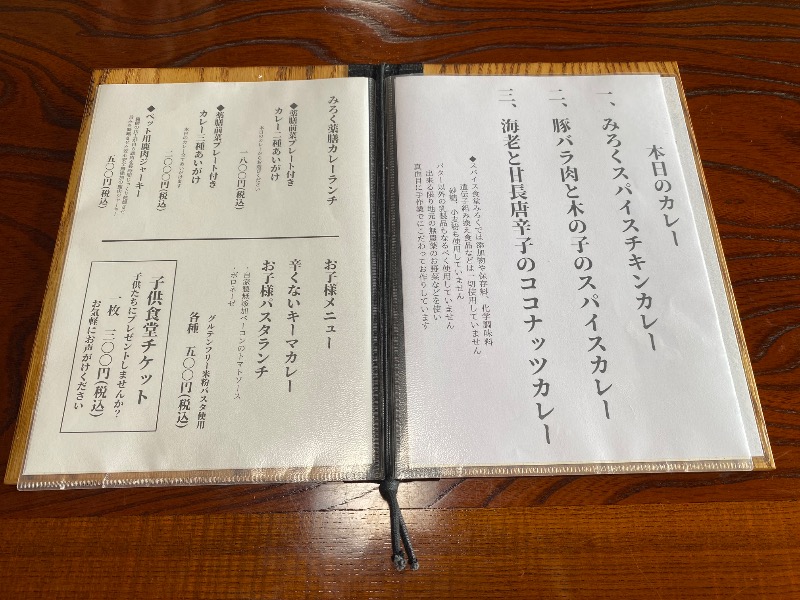 本日のカレー
一、みろくスパイスチキンカレー
二、豚バラ肉と木の子のスパイスカレー
三、海老と甘長唐辛子のココナッツカレー
◆スパイス食堂みろくでは添加物や保存料、化学調味料
遺伝子組み換え食品などは一切使用していません
砂糖、小麦粉も使用していません
バター以外の乳製品もなるべく使用していません
出来る限り地元の無農薬のお野菜などを使い
真面目に手作業でこだわってお作りしています
みろく薬膳カレーランチ
◆薬膳前菜プレート付き
カレー二種あいがけ
一八〇〇円(税込)
◆薬膳前菜プレート付き
カレー三種あいがけ
二〇〇〇円(税込)
◆ペット用鹿肉ジャーキー
五〇〇円(税込)
お子様メニュー
辛くないキーマカレー
お子様パスタランチ
・自家製無添加ベーコンのトマトソース
・ボロネーゼ
グルテンフリー米粉パスタ使用
各種 五〇〇円(税込)
子供食堂チケット
子供たちにプレゼントしませんか?
一枚 三〇〇円(税込)
お気軽にお声がけください